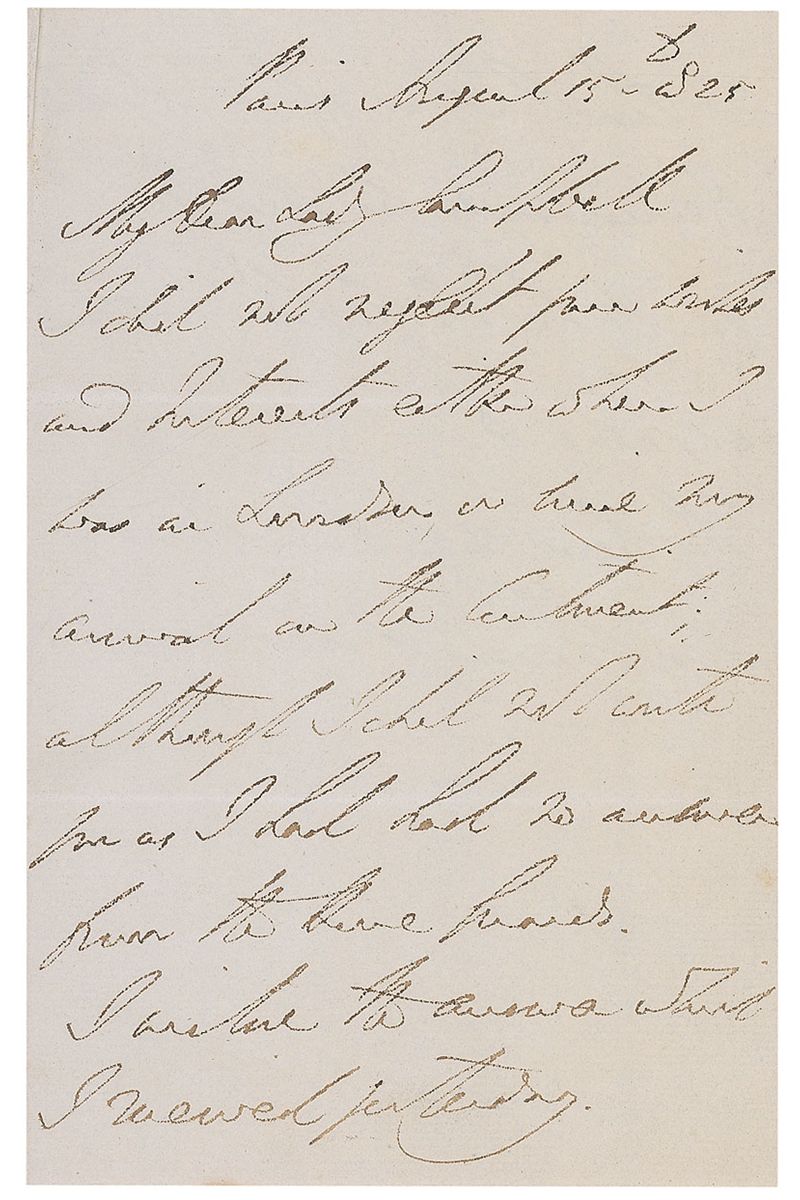 Paris August 15
My Dear Lady Campbell
I did not neglect your wishes
and Interests either when I
was in London, or since my
arrival on the Continent;
although I did not write
you as I had had no answer
from the Guards.
I inclose the answer which
I received yesterday.